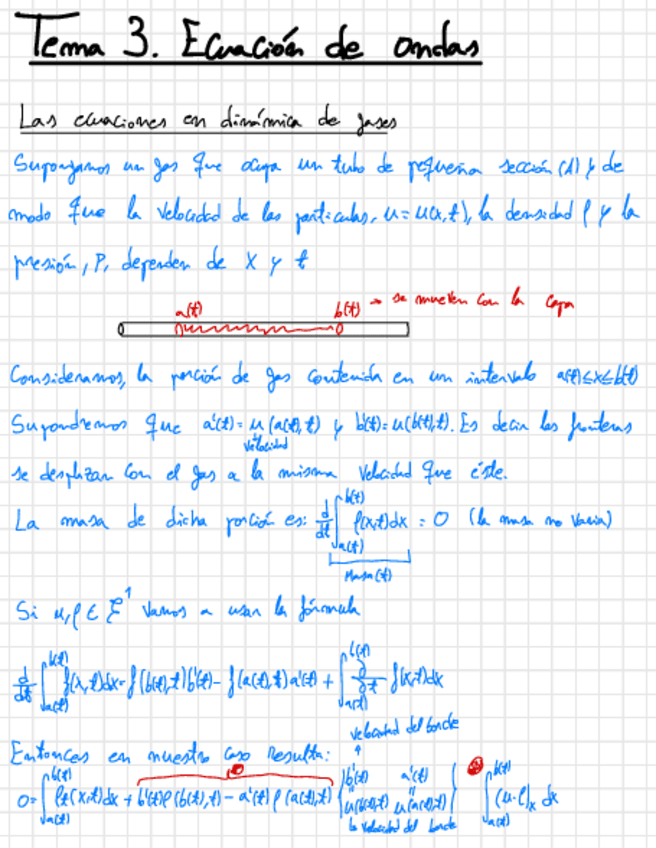 Tema 3. Ecuación de ondas
Las ecuaciones en dinámica de gases
Supongamos un gas que ocupa un tubo de pequeña sección (A) y de
modo que la velocidad de las particulas, u = u(x,t), la densidad ρ y la
presión, P, dependen de x y t
a(t) b(t) → se mueven con la capa
Consideramos, la porción de gas contenida en un intervalo a(t)≤x≤b(t)
Supondremos que a'(t) = u(a(t),t) y b'(t) = u(b(t),t). Es decir las fronteras
velocidad
se desplazan con el gas a la misma velocidad que éste.
La masa de dicha porción es: d/dt ∫_{a(t)}^{b(t)} ρ(x,t)dx = 0 (la masa no varia)
Masa(t)
Si u,ρ ∈ C^1 vamos a usar la fórmula
d/dt ∫_{a(t)}^{b(t)} f(x,t)dx = f(b(t),t)b'(t) - f(a(t),t)a'(t) + ∫_{a(t)}^{b(t)} ∂/∂t f(x,t)dx
Entonces en nuestro caso resulta:
velocidad del borde
0 = ∫_{a(t)}^{b(t)} ρt(x,t)dx + b'(t)ρ(b(t),t) - a'(t)ρ(a(t),t) { b'(t) a'(t) u(b(t),t) u(a(t),t) } ∫_{a(t)}^{b(t)} (u·ρ)_x dx
la velocidad del borde